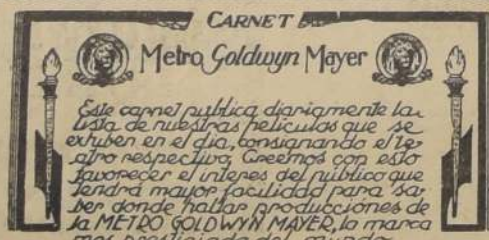 CARNET
Metro Goldwyn Mayer
Este carnet publica diariamente la
lista de nuestras películas que se
exhiben en el día, consignando el te-
atro respectivo, Creemos con esto
favorecer el interes del público que
tendrá mayor facilidad para sa-
ber donde hallar producciones de
la METRO GOLDWYN MAYER, la marca
mas prestigiada del mundo